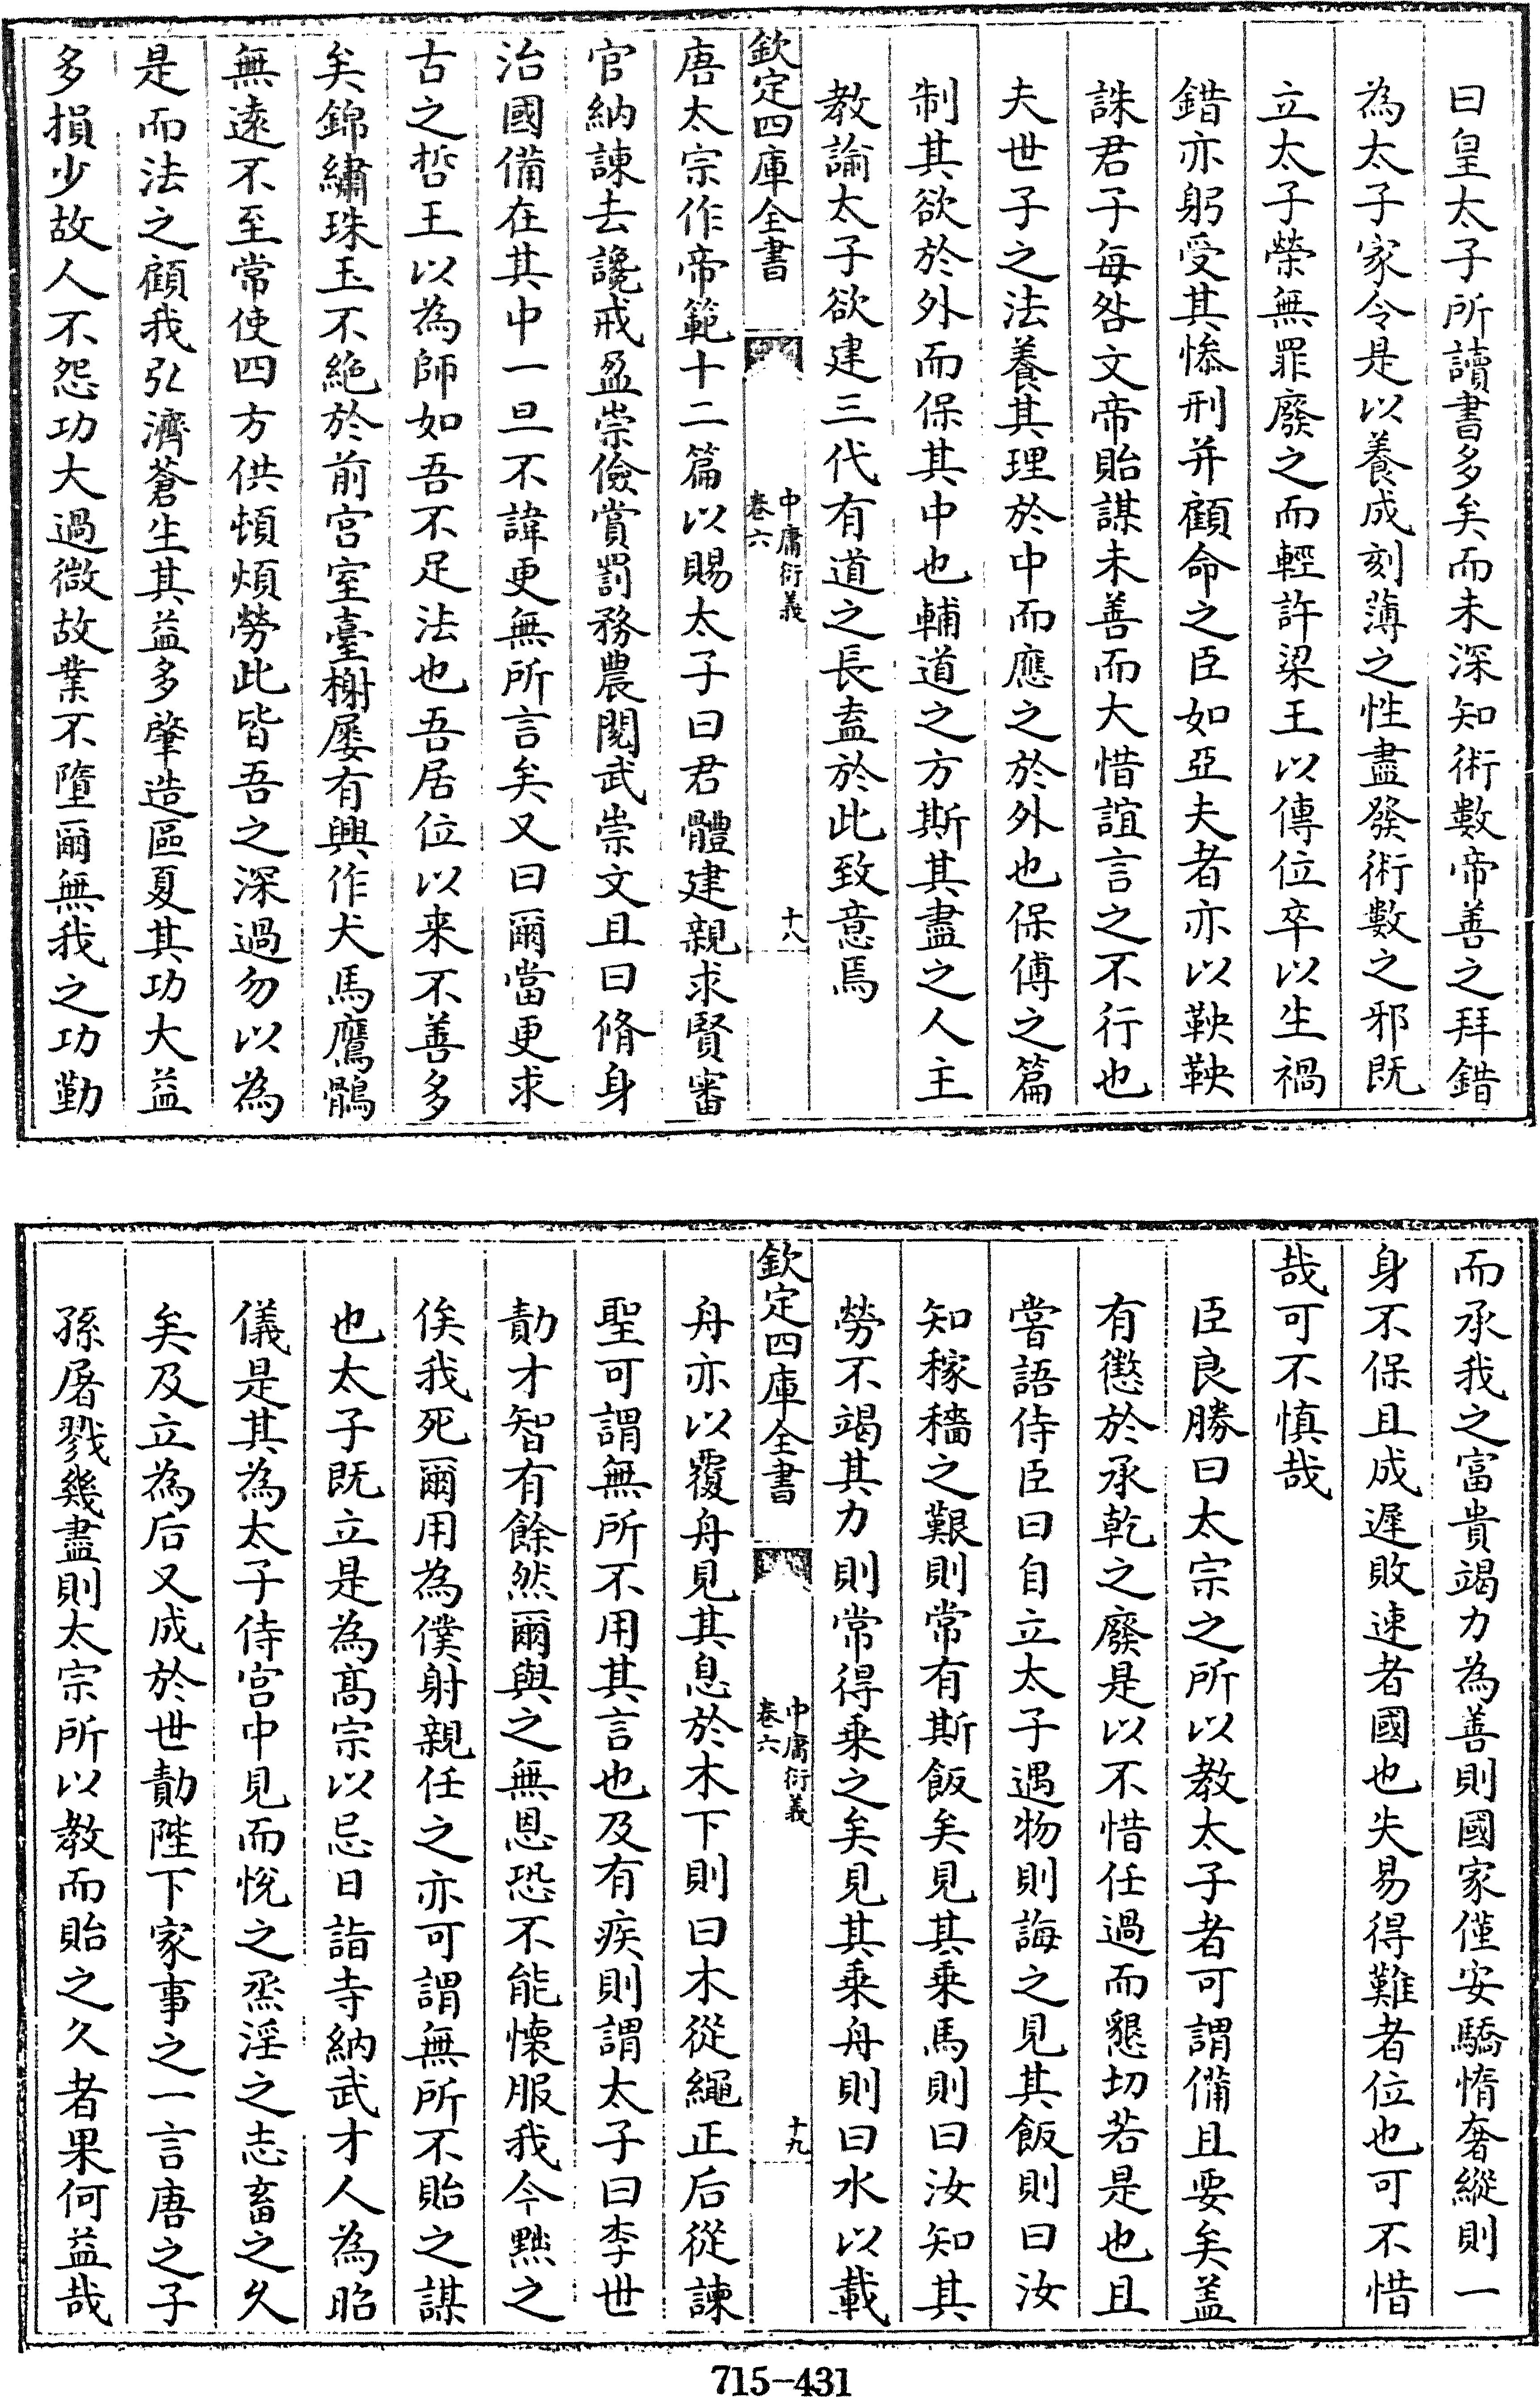 曰皇太子所讀書多矣而未深知術數帝善之拜錯
為太子家令是以養成刻薄之性盡發術數之邪既
立太子榮無罪廢之而輕許梁王以傳位卒以生禍
錯亦躬受其慘刑并顧命之臣如亞夫者亦以鞅鞅
誅君子每咎文帝貽謀未善而大惜誼言之不行也
夫世子之法養其理於中而應之於外也保傅之篇
制其欲於外而保其中也輔道之方斯其盡之人主
教諭太子欲建三代有道之長盍於此致意焉
欽定四庫全書
中庸衍義
卷六
十八
唐太宗作帝範十二篇以賜太子曰君體建親求賢審
官納諫去讒戒盈崇儉賞罰務農閱武崇文且曰脩身
治國備在其中一旦不諱更無所言矣又曰爾當更求
古之哲王以為師如吾不足法也吾居位以来不善多
矣錦繡珠玉不絶於前宫室臺榭屢有興作犬馬鷹鶻
無遠不至常使四方供頓煩勞此皆吾之深過勿以為
是而法之顧我弘濟蒼生其益多肇造區夏其功大益
多損少故人不怨功大過微故業不墮爾無我之功勤
而承我之富貴竭力為善則國家僅安驕惰奢縱則一
身不保且成遲敗速者國也失易得難者位也可不惜
哉可不慎哉
臣良勝曰太宗之所以教太子者可謂備且要矣盖
有懲於承乾之廢是以不惜任過而懇切若是也且
嘗語侍臣曰自立太子遇物則誨之見其飯則曰汝
知稼穡之艱則常有斯飯矣見其乗馬則曰汝知其
勞不竭其力則常得乗之矣見其乗舟則曰水以載
欽定四庫全書
中庸衍義
卷六
十九
舟亦以覆舟見其息於木下則曰木從繩正后從諫
聖可謂無所不用其言也及有疾則謂太子曰李世
勣才智有餘然爾與之無恩恐不能懐服我今黜之
俟我死爾用為僕射親任之亦可謂無所不貽之謀
也太子既立是為髙宗以忌日詣寺納武才人為昭
儀是其為太子侍宫中見而悅之烝淫之志畜之久
矣及立為后又成於世勣陛下家事之一言唐之子
孫屠戮幾盡則太宗所以教而貽之久者果何益哉
715-431